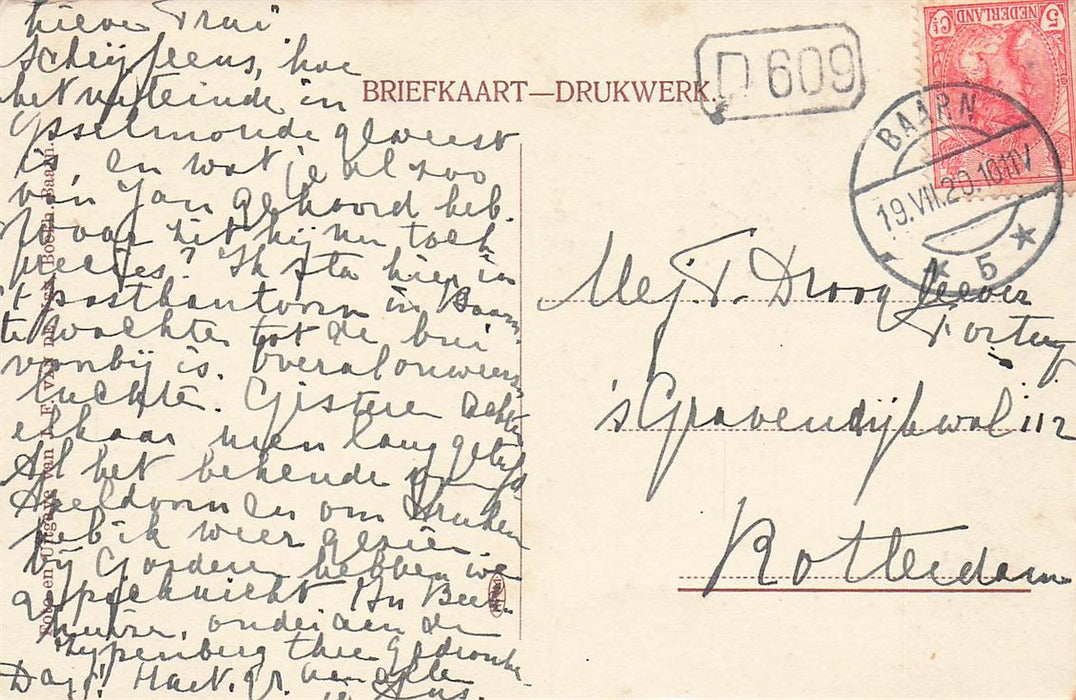 Lieve Trui
Schrijf eens, hoe
het uiteinde in
IJsselmonde geweest
is, en wat je al zoo
van Jan gehoord heb.
Waar zit hij nu toch
precies? Ik sta hier in
't postkantoor in Baarn
te wachten tot de bui
voorbij is. Overal onweers
luchten. Gisteren
elkaar uren lang
Al het bekende
Apeldoorn en om
heb ik weer gezien.
bij Garderen hebben we
gepicknickt In Beek
huizen, onder aan den
Zypenberg thee gedronken
Dag! Hart. gr. van allen
je Jus.
BRIEFKAART—DRUKWERK.
Foto en Uitgave van L. F. VAN DE VEN, Boekh. Baarn.
D 609
NEDERLAND
5 Ct
BAARN
19.VII.20.10-11V
5
Mej. T. Droogleever
Fortuyn
's Gravendijkwal 112
Rotterdam